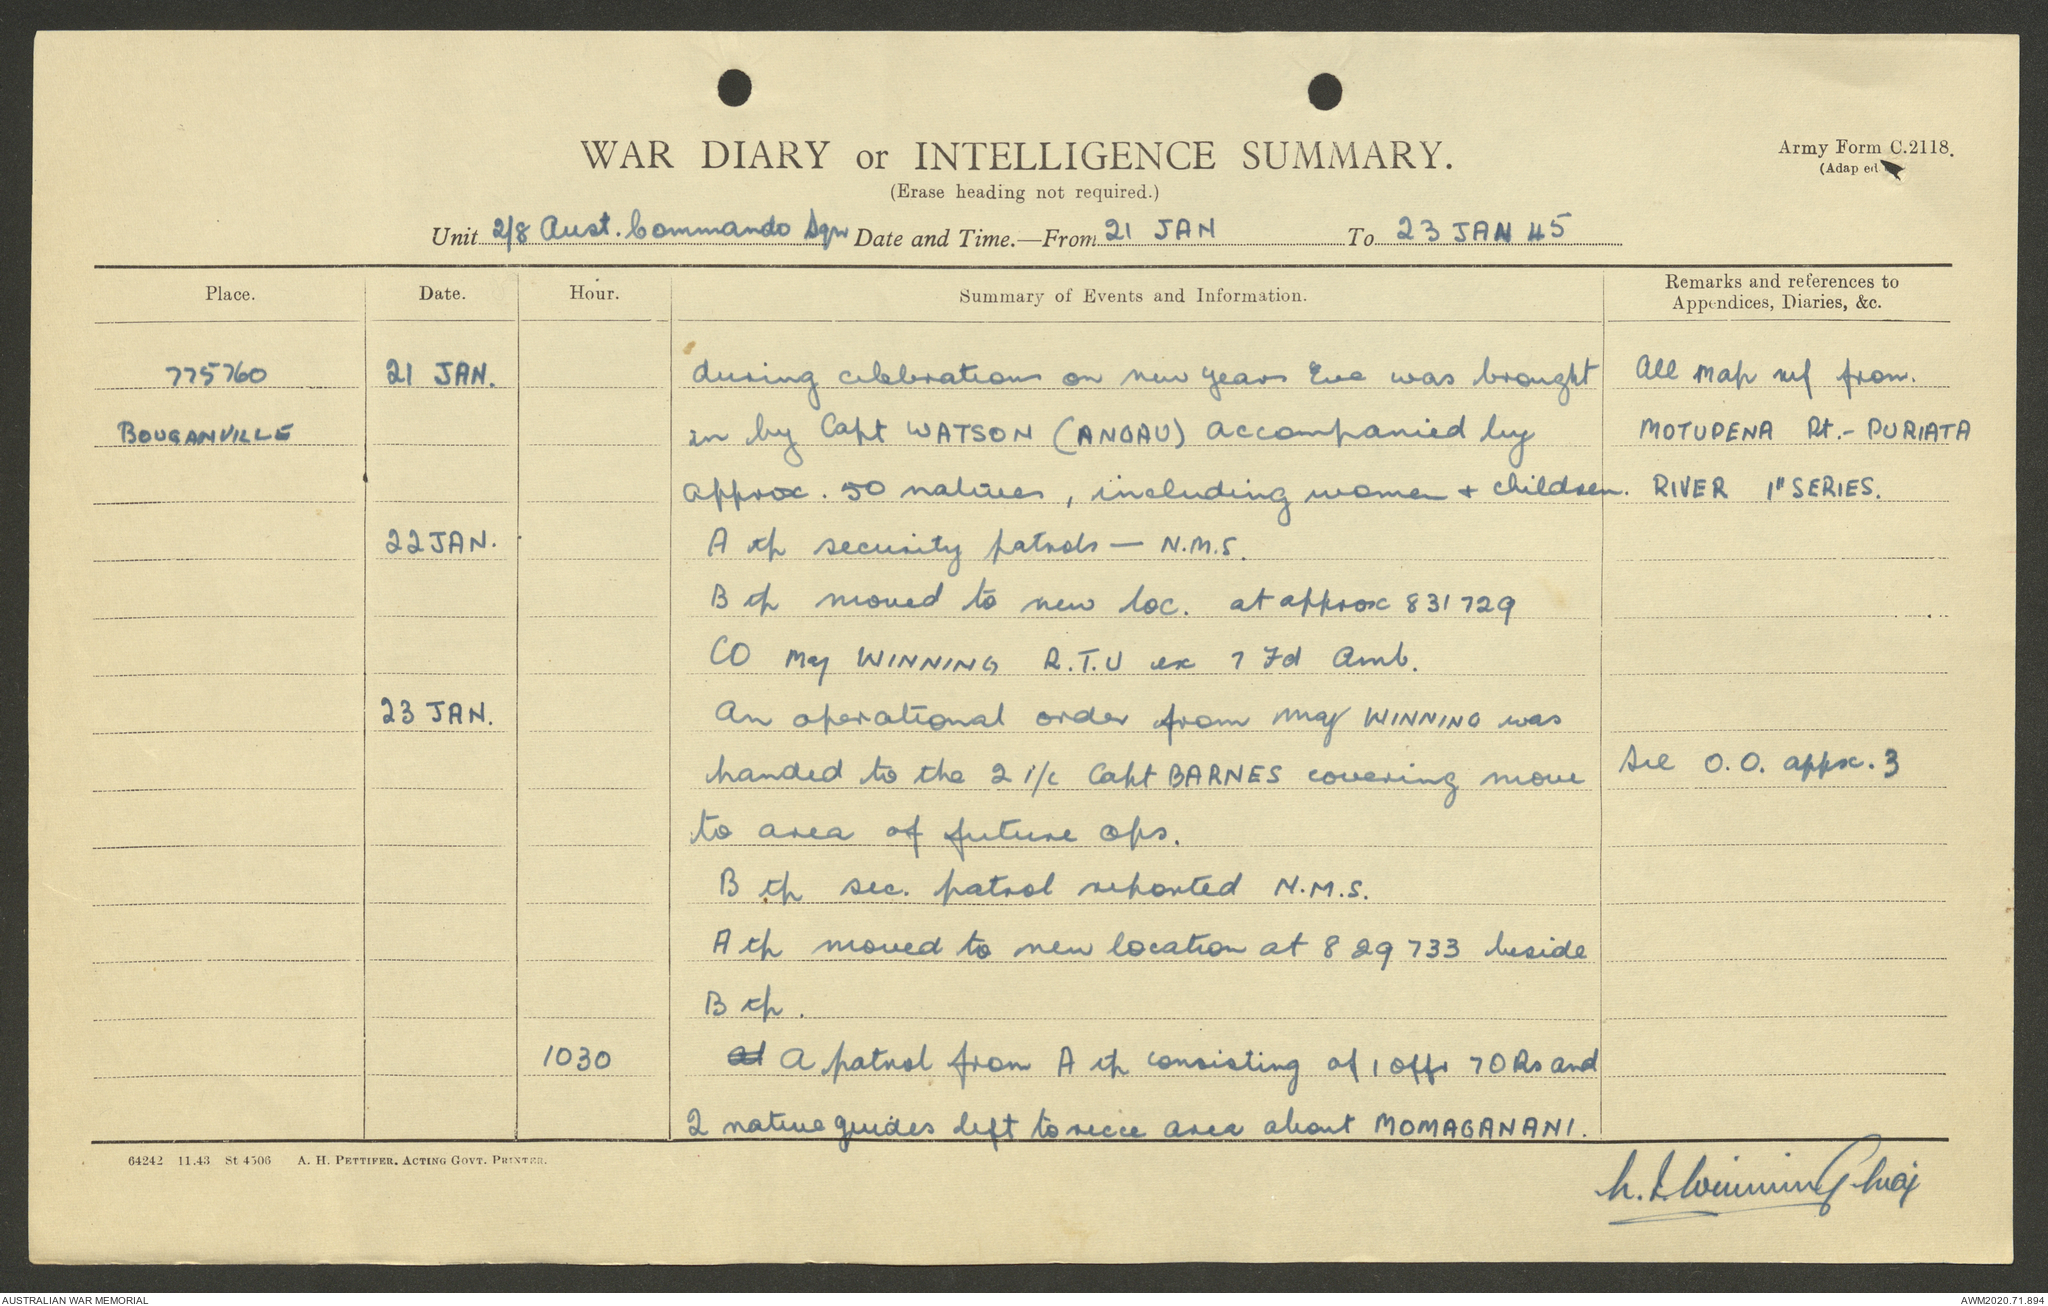 WAR DIARY or INTELLIGENCE SUMMARY.
Army Form C.2118.
(Erase heading not required.)
(Adap ed
Unit 2/8 Aust. Commando Sqn Date and Time.—From 21 JAN To 23 JAN 45
Place. Date. Hour. Summary of Events and Information. Remarks and references to Appendices, Diaries, &c.
775760 21 JAN. during celebrations on new years Eve was brought All map ref from.
BOUGANVILLE in by Capt WATSON (ANGAU) accompanied by MOTUPENA Pt.- PURIATA
approx. 50 natives, including women + children. RIVER 1" SERIES.
22 JAN. A tp security patrols — N.M.S.
B tp moved to new loc. at approx 831729
CO Maj WINNING R.T.U ex 7 Fd Amb.
23 JAN. An operational order from Maj WINNING was
handed to the 2 i/c Capt BARNES covering move See O.O. appx. 3
to area of future ops.
B tp sec. patrol reported N.M.S.
A tp moved to new location at 829733 beside
B tp.
1030 A patrol from A tp consisting of 1 offr 7 ORs and
2 native guides left to recce area about MOMAGANANI.
64242 11.43 St 4506 A. H. PETTIFER, ACTING GOVT. PRINTER.
Winning Maj
AUSTRALIAN WAR MEMORIAL
AWM2020.71.894